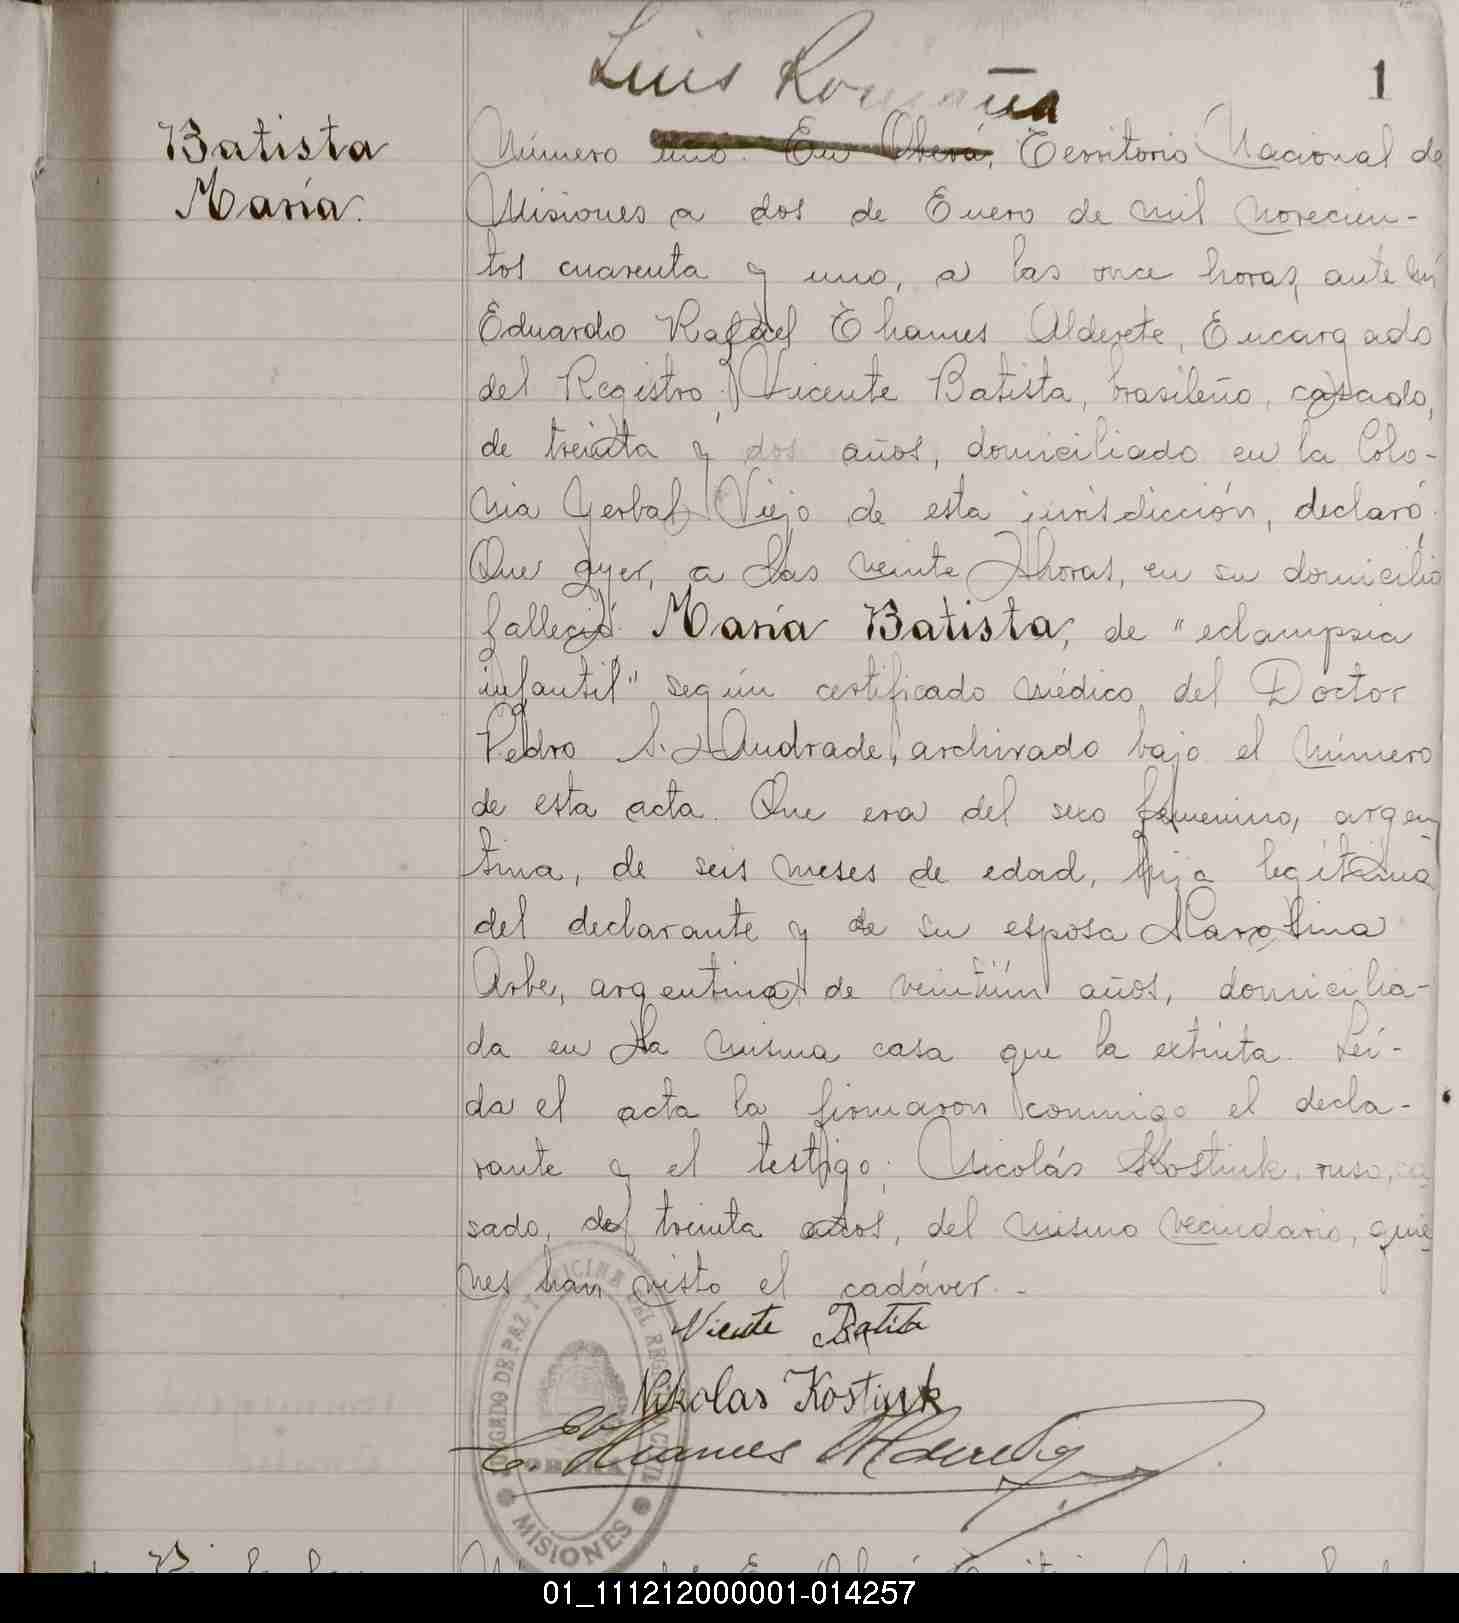 Luis Romaña
1
Batista
María.
Número uno. En Oberá, Territorio Nacional de
Misiones a dos de Enero de mil novecien-
tos cuarenta y uno, a las once horas, ante mí
Eduardo Rafael Thames Alderete, Encargado
del Registro, Vicente Batista, brasileño, casado,
de treinta y dos años, domiciliado en la Colo-
nia Yerbal Viejo de esta jurisdicción, declaró:
Que ayer, a las veinte horas, en su domicilio
falleció María Batista, de "eclampsia
infantil" según certificado médico del Doctor
Pedro S. Andrade, archivado bajo el número
de esta acta. Que era del sexo femenino, argen-
tina, de seis meses de edad, hija legítima
del declarante y de su esposa
Arbe, argentina, de veintiún años, domicilia-
da en la misma casa que la extinta. Leí-
da el acta la firmaron conmigo el decla-
rante y el testigo: Nicolás Kostiuk, ruso, ca-
sado, de treinta años, del mismo vecindario, quie-
nes han visto el cadáver.-
Vicente Batista
Nikolas Kostiuk
E. Thames Alderete
JUZGADO DE PAZ Y OFICINA DEL REGISTRO CIVIL
MISIONES
01_111212000001-014257